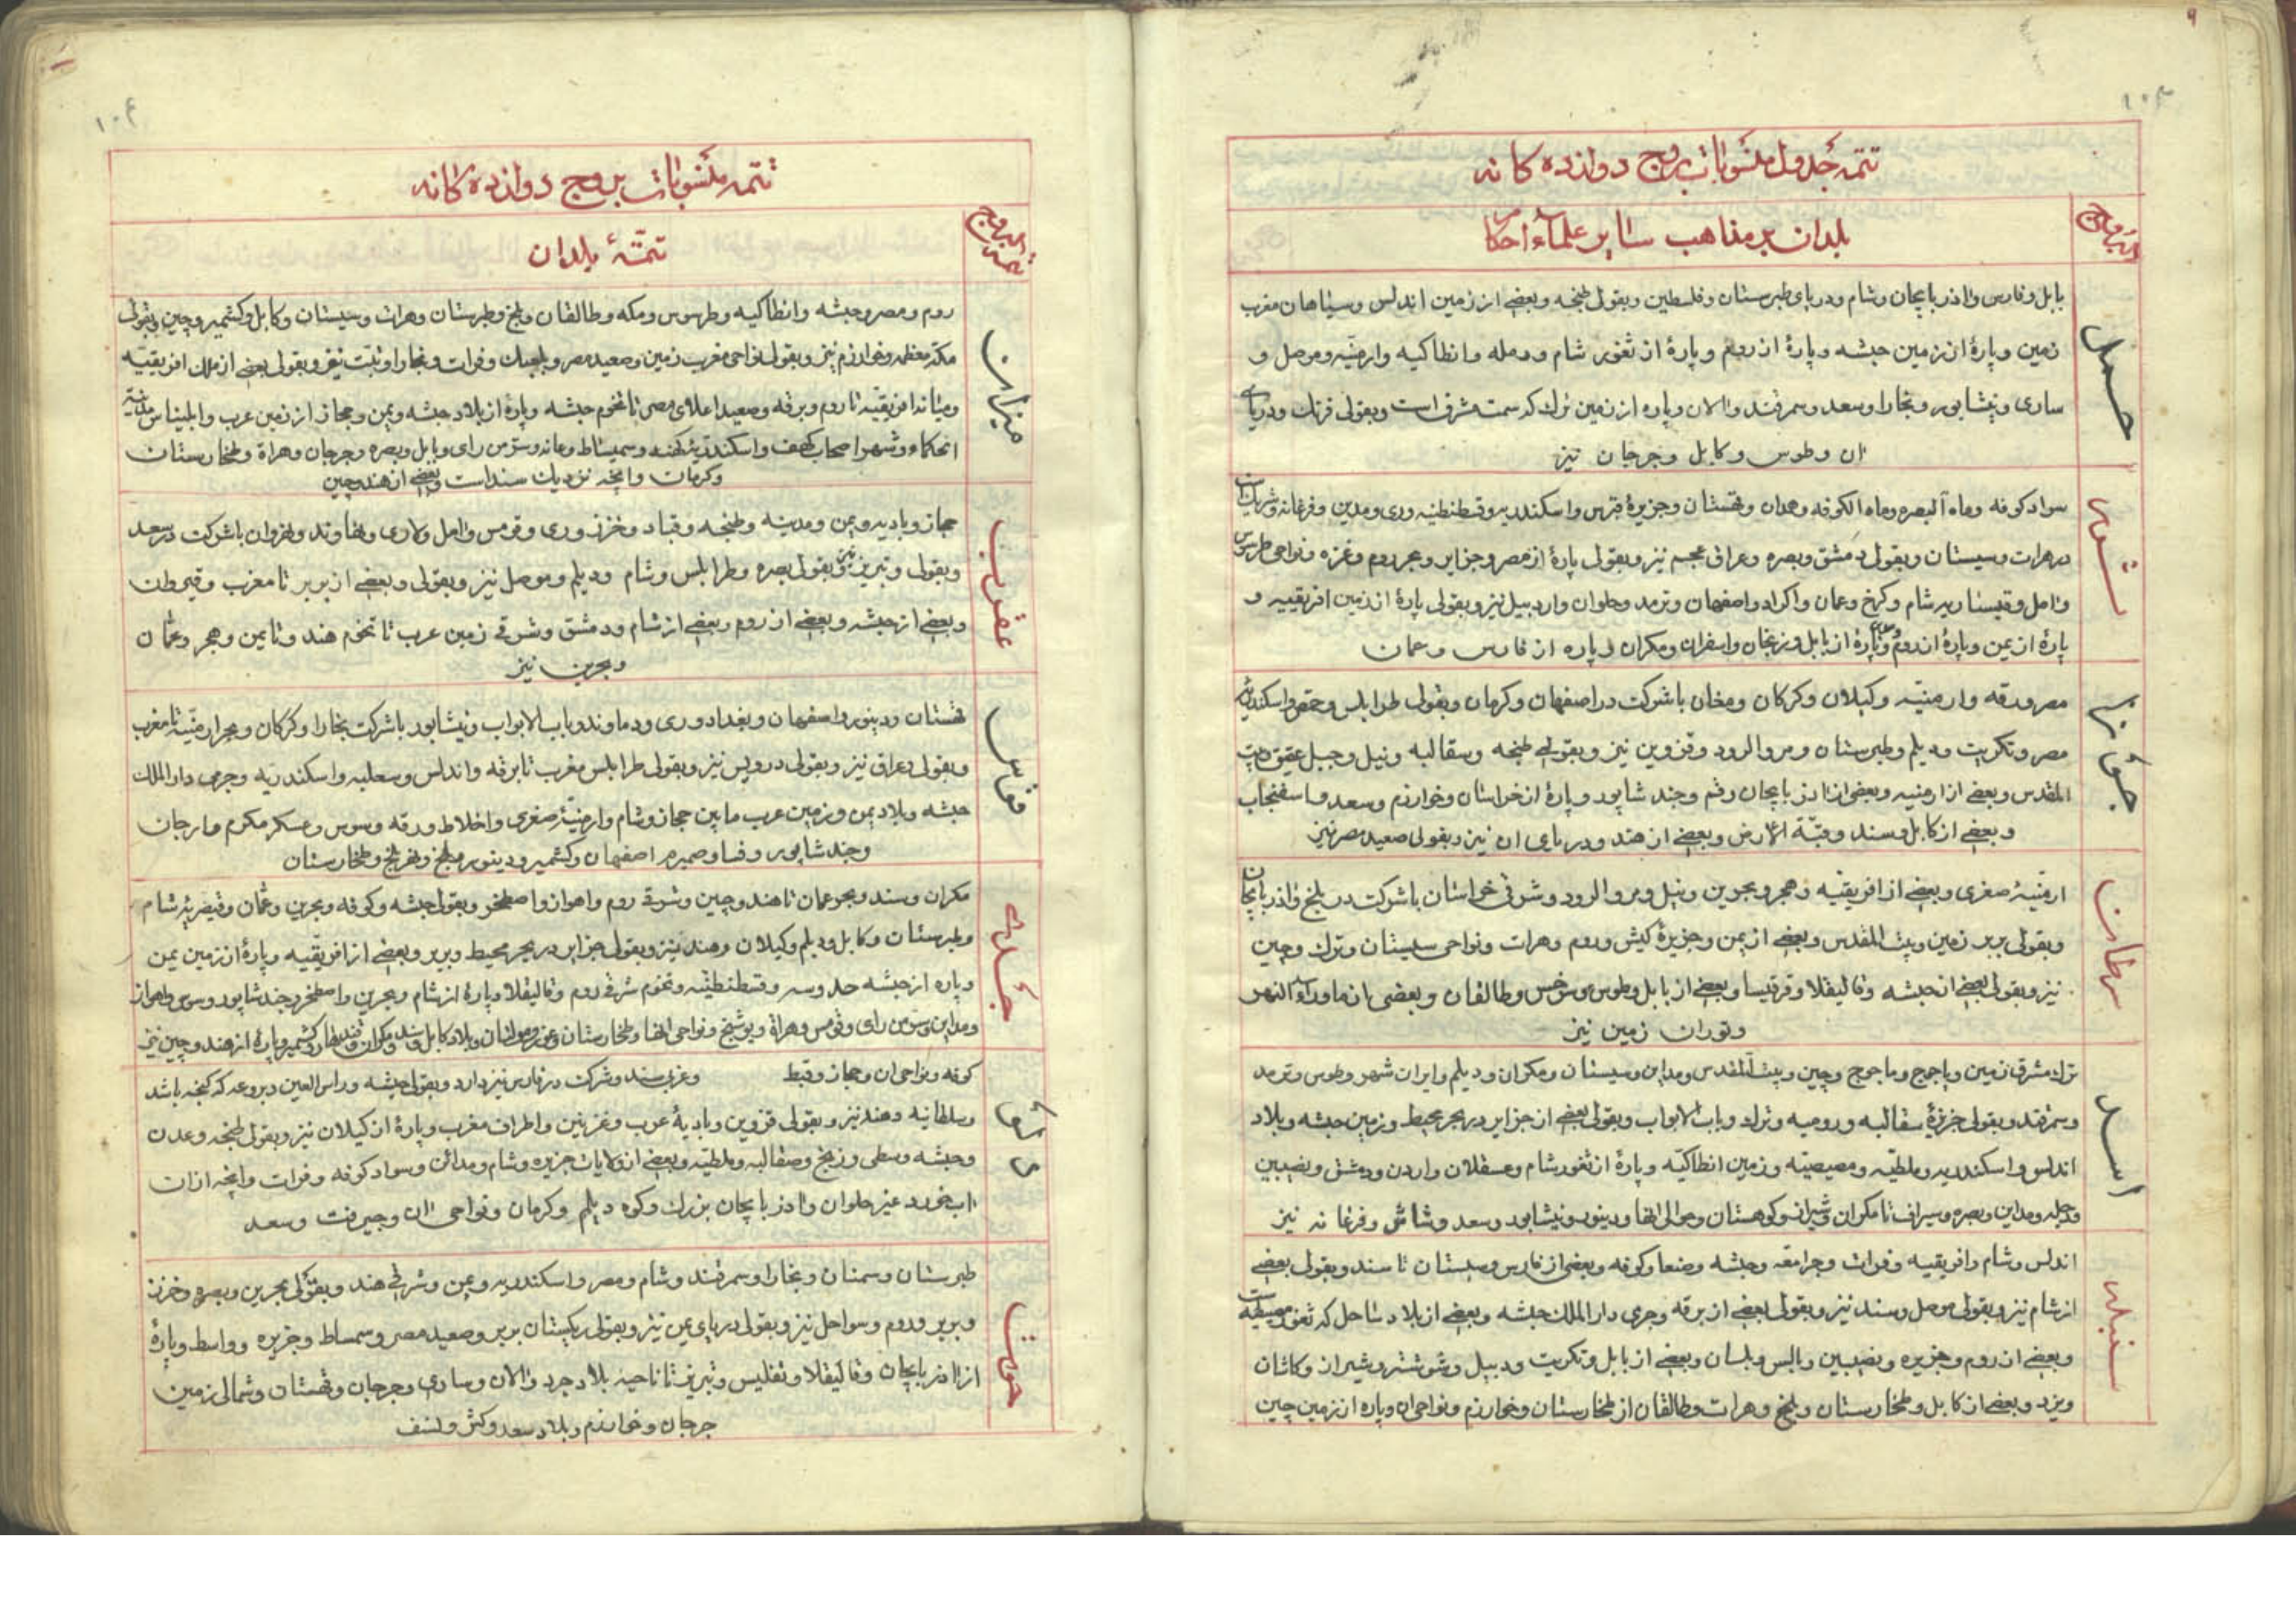 ۱۰۳
تتمه جدول منسوبات بروج دوازده کانه
بلدان بر مذاهب سایر علماء احکام
حمل
بابل و فارس و اذربایجان و شام و دریای طبرستان و فلسطین و بقولی طنجه و بعضی از زمین اندلس و سیاهان مغرب
زمین و پارۀ از زمین حبشه و پارۀ از روم و پارۀ از ثغور شام و رمله و انطاکیه و ارمنیه و موصل و
ساری و نیشابور و بخارا و سعد و سمرقند و الان و پاره از زمین ترک که سمت مشرق است و بقولی فرنک و دریای
ان و طوس و کابل و جرجان نیز
ثور
سواد کوفه و ماه البصره و ماه الکوفه و همدان و قهستان و جزیرۀ قبرس و اسکندریه و قسطنطنیه و ری و مدین و فرغانه و شریک است
در هرات و سیستان و بقولی دمشق و بصره و عراق عجم نیز و بقولی پارۀ از مصر و جزایر و بحر روم و غزه و نواحی طرسوس
و امل و قیساریه شام و کرخ و عمان و اکراد و اصفهان و ترمد و حلوان و اردبیل نیز و بقولی پارۀ از زمین افریقیه و
پارۀ از یمن و پارۀ از روم و پارۀ از بابل و زنجان و اسفران و مکران و پاره از فارس و عمان
جوزا
مصر و برقه و ارمنیه و کیلان و کرکان و مغان باشرکت در اصفهان و کرمان و بقولی طرابلس و حمص و اسکندریه
مصر و تکریت و دیلم و طبرستان و مرو الرود و قزوین نیز و بقولی طنجه و سقالبه و نیل و جبل عقیق و بیت
المقدس و بعضی از ارمنیه و بعضی از اذربایجان و قم و جند شاپور و پارۀ از خراسان و خوارزم و سعد و اسفنجاب
و بعضی از کابل و سند و قبّة الارض و بعضی از هند و دریای ان نیز و بقولی صعید مصر نیز
سرطان
ارمنیۀ صغری و بعضی از افریقیه و هجر و بحرین و نیل و مرو الرود و شرقی خراسان باشرکت در بلخ و اذربایجان
و بقولی بربر زمین و بیت المقدس و بعضی از یمن و جزیرۀ کیش و روم و هرات و نواحی سیستان و ترک و چین
نیز و بقولی بعضی از حبشه و قالیقلا و قرقیسا و بعضی از بابل و طوس و سرخس و طالقان و بعضی از ماوراء النهر
و توران زمین نیز
اسد
ترک مشرق زمین و یاجوج و ماجوج و چین و بیت المقدس و مداین و سیستان و مکران و دیلم و ایران شهر و طوس و ترمد
و سمرقند و بقولی جزیرۀ سقالبه و رومیه و ترک و باب الابواب و بقولی بعضی از جزایر در بحر محیط و زمین حبشه و بلاد
اندلس و اسکندریه و ملطیّه و مصیصیّه و زمین انطاکیّه و پارۀ از ثغور شام و عسقلان و اردن و دمشق و نصیبین
و دجله و مداین و بصره و سیراف تا مکران و شیراز و کوهستان و حوالی انها و دینور و نیشابور و سعد و شاش و فرغانه نیز
سنبله
اندلس و شام و افریقیه و فرات و جرامقه و حبشه و صنعا و کوفه و بعضی از فارس و سیستان تا سند و بقولی بعضی
از شام نیز و بقولی موصل و سند نیز و بقولی بعضی از برقه و جرمی دار الملک حبشه و بعضی از بلاد ساحل که ثغور مصیصیّه است
و بعضی از روم و جزیره و نصیبین و بالس و بلسان و بعضی از بابل و تکریت و دبیل و شوشتر و شیراز و کاشان
و یزد و بعضی از کابل و طخارستان و بلخ و هرات و طالقان از طخارستان و خوارزم و نواحی ان و پاره از زمین چین
۱۰۴
تتمه منسوبات بروج دوازده کانه
تتمّۀ بلدان
میزان
روم و مصر و حبشه و انطاکیه و طرسوس و مکه و طالقان و بلخ و طبرستان و هرات و سیستان و کابل و کشمیر و چین و بقولی
مکّه معظمه و خوارزم نیز و بقولی نواحی مغرب زمین و صعید مصر و فرات و بخارا و تبّت نیز و بقولی بعضی از ملک افریقیه
و میانه افریقیّه تا روم و برقه و صعید اعلای مصر تا تخوم حبشه و پارۀ از بلاد حبشه و یمن و حجاز از زمین عرب و ابلیناس مدینه
الحکماء و شهر اصحاب کهف و اسکندریّه کهنه و سمیساط و عانه و سرّ من رای و بابل و بصره و جرجان و هراة و طخارستان
و کرمان و انچه نزدیک سند است و بعضی از هند و چین
عقرب
حجاز و بادیه و یمن و مدینه و طنجه و قباد و خزز و ری و قومس و امل و ساری و نهاوند و نهروان باشرکت در سعد
و بقولی و تبریز نیز و بقولی بصره و طرابلس و شام و دیلم و موصل نیز و بقولی و بعضی از بربر تا مغرب و
و بعضی از حبشه و بعضی از روم و بعضی از شام و دمشق و شرقی زمین عرب تا تخوم هند و تا یمن و هجر و عمان
و بحرین نیز
قوس
قهستان و دینور و اصفهان و بغداد و ری و دماوند و باب الابواب و نیشابور باشرکت بخارا و کرکان و بحر ارمنیّه تا مغرب
و بقولی و عراق نیز و بقولی در نیز و بقولی طرابلس مغرب تا برقه و اندلس و سعلبه و اسکندریه و جرمی دار الملک
حبشه و بلاد یمن و زمین عرب مابین حجاز و شام و ارمنیّۀ صغری و اخلاط و رقه و سوس و عسکر مکرم و ارجان
و جند شاپور و فسا و صمیرم اصفهان و کشمیر و دینور و بلخ و طخارستان
جدی
مکران و سند و بحر عمان تا هند و چین و شرقی روم و اهواز و اصطخر و بقولی حبشه و کوفه و بحرین و عمان و قیصریّه شام
و طبرستان و کابل و دیلم و کیلان و هند نیز و بقولی جزایر در بحر محیط و بربر و بعضی از افریقیّه و پارۀ از زمین یمن
و پاره از حبشه و قسطنطنیّه و تخوم شرقی روم و قالیقلا و پارۀ از شام و بحرین و اصطخر و جند شاپور و سوس و اهواز
و مداین و سرّ من رای و قومس و هراة و پوشنج و نواحی انها و طخارستان و بلاد کابل و کشمیر و پارۀ از هند و چین نیز
دلو
کوفه و نواحی ان و حجاز و قبط و غربی سند و شرکت در فارس نیز دارد و بقولی حبشه و راس العین و بردعه که کنجه باشد
و سلطانیه و هند نیز و بقولی قزوین و بادیۀ عرب و غزنین و اطراف مغرب و پارۀ از کیلان نیز و بقولی طنجه و عدن
و حبشه وسطی و زنج و صقالبه و ملطیّه و بعضی از ولایات جزیره و شام و مدائن و سواد کوفه و فرات و انچه از ان
اب خورد غیر حلوان و اذربایجان بزرک و کوه دیلم و کرمان و نواحی ان و جیرفت و سعد
حوت
طبرستان و سمنان و بخارا و سمرقند و شام و مصر و اسکندریه و یمن و شرقی هند و بقولی بحرین و بصره و خزز
و بربر و روم و سواحل نیز و بقولی دریای یمن نیز و بقولی ریکستان بربر و صعید مصر و سمساط و جزیره و واسط و پارۀ
از اذربایجان و قالیقلا و تفلیس و تبریز تا ناحیۀ بلاد جرد و الان و ساری و جرجان و قهستان و شمالی زمین
جرجان و خوارزم و بلاد سعد و کش و نسف